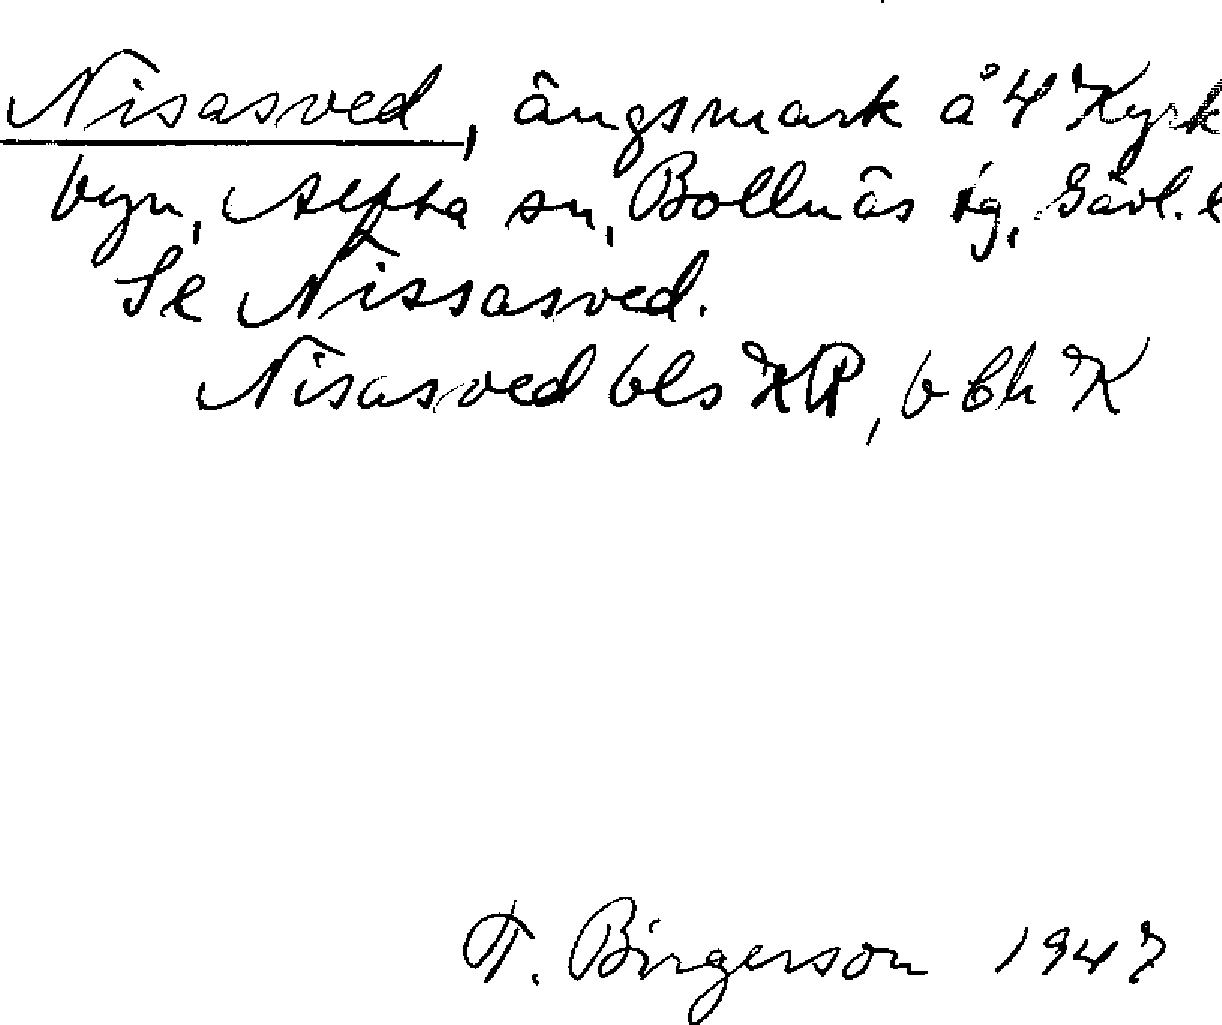 Nisasved, ängsmark å 4 Kyrk
byn, Alfta sn, Bollnäs tg, Gävl. l
Se Nissasved.
Nisasved bls KR, v bh K
T. Birgerson 1947